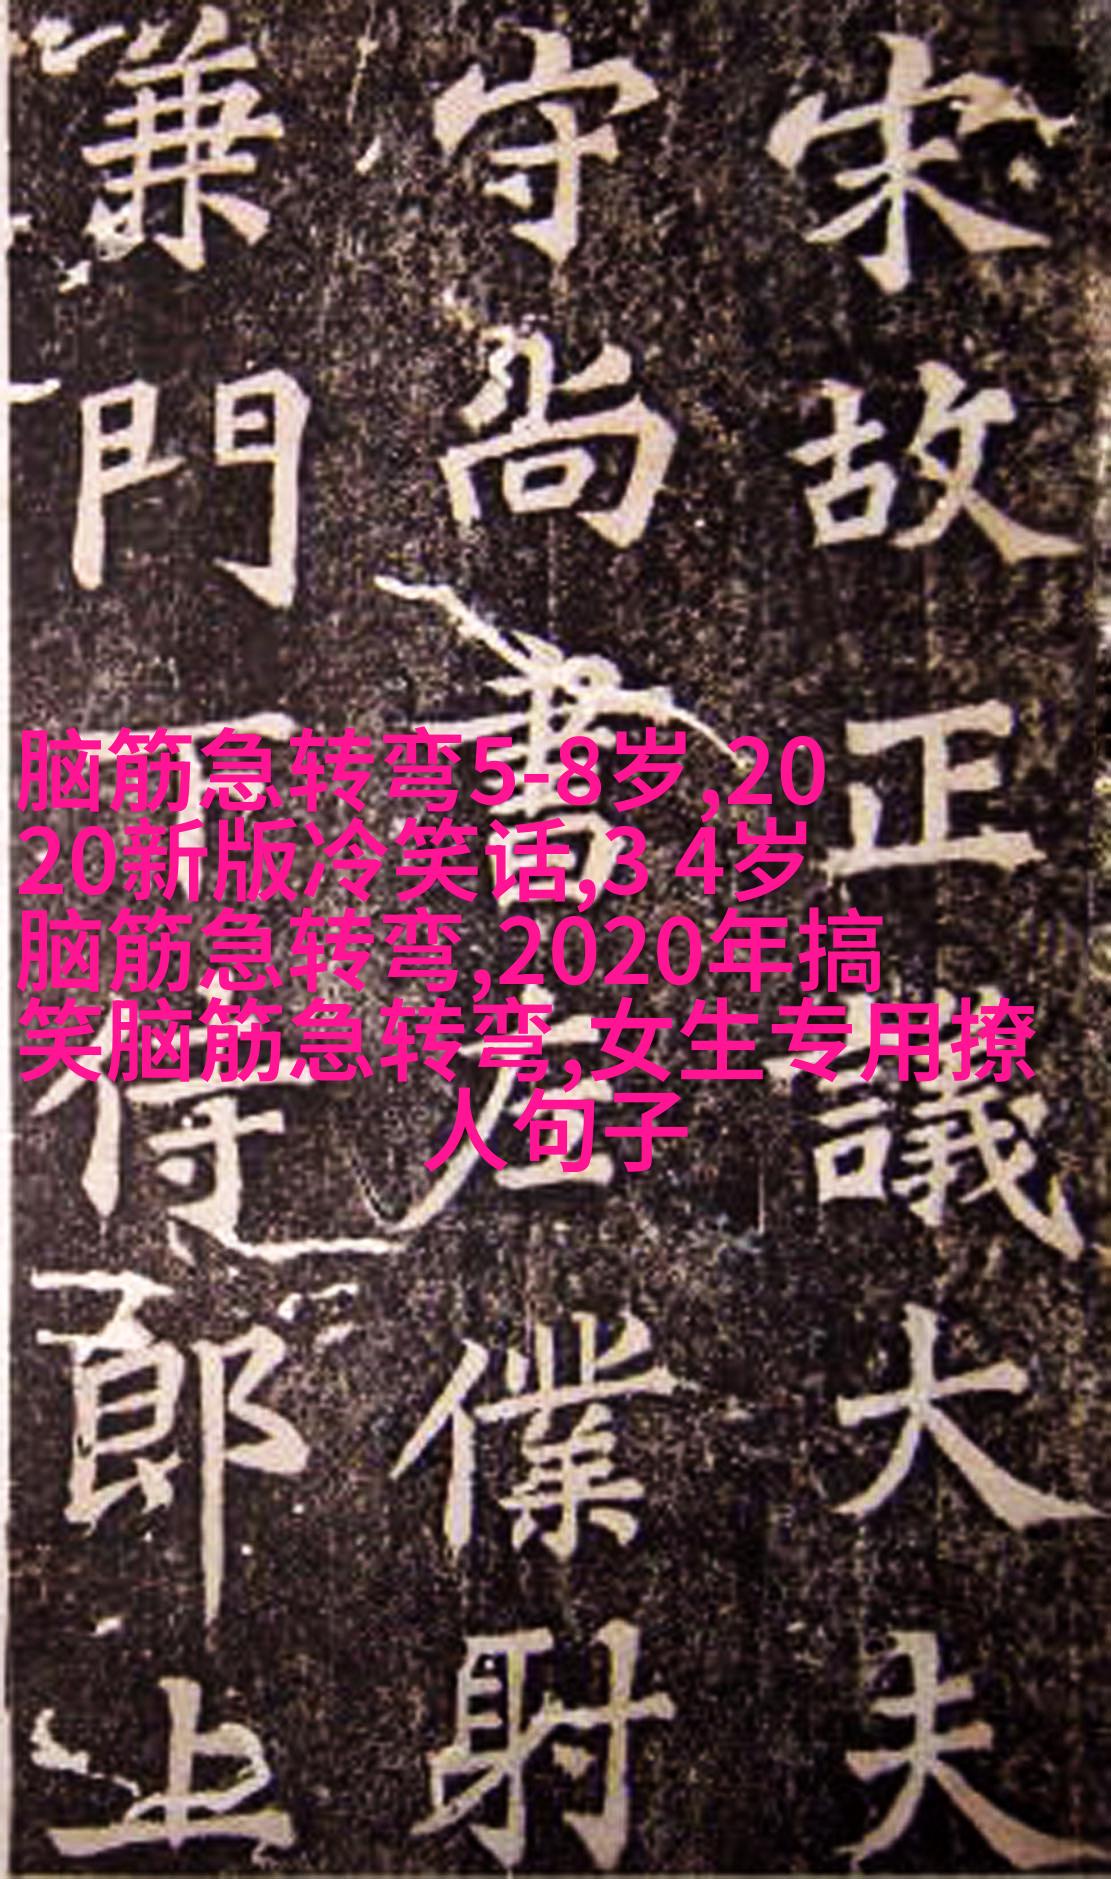 宋故正議大夫
守尚書左僕射
兼門下侍郎上
脑筋急转弯5-8岁,20
20新版冷笑话,3 4岁
脑筋急转弯,2020年搞
笑脑筋急转弯,女生专用撩
人句子